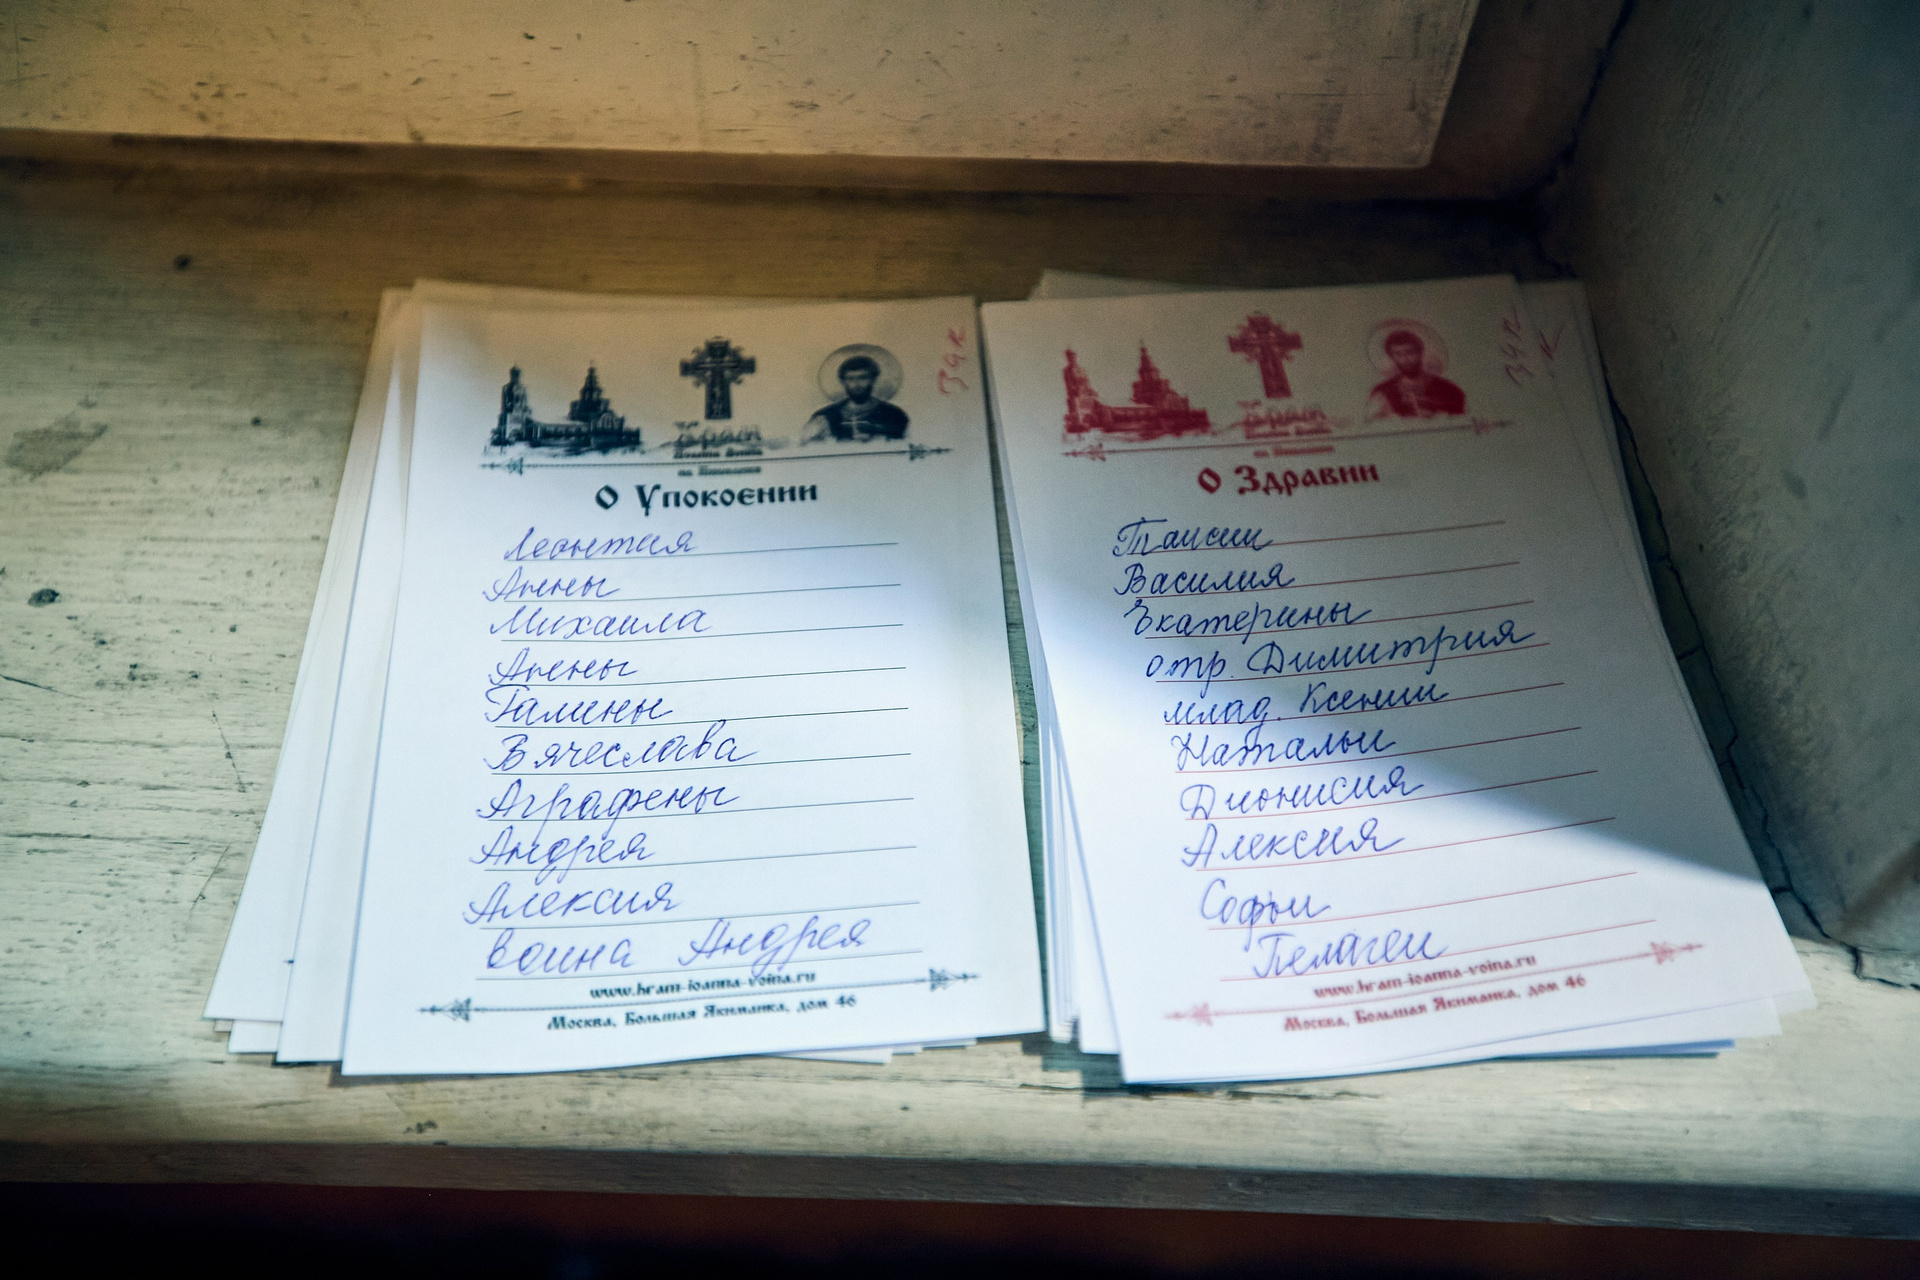 Храм
Иоанна Воина
на Якиманке
О Упокоении
Леонтия
Анны
Михаила
Анны
Галины
Вячеслава
Аграфены
Андрея
Алексия
воина Андрея
www.hram-ioanna-voina.ru
Москва, Большая Якиманка, дом 46
Храм
Иоанна Воина
на Якиманке
О Здравии
Таисии
Василия
Екатерины
отр. Димитрия
млад. Ксении
Натальи
Дионисия
Алексия
Софьи
Пелагеи
www.hram-ioanna-voina.ru
Москва, Большая Якиманка, дом 46